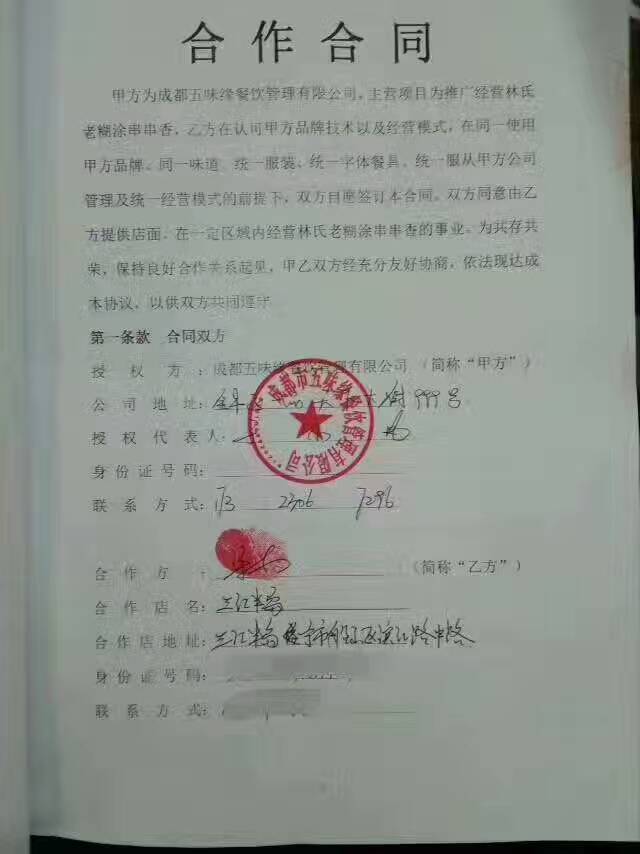 合作合同
甲方为成都五味缘餐饮管理有限公司，主营项目为推广经营林氏
老糊涂串串香，乙方在认可甲方品牌技术以及经营模式，在同一使用
甲方品牌、同一味道、统一服装、统一字体餐具、统一服从甲方公司
管理及统一经营模式的前提下，双方自愿签订本合同。双方同意由乙
方提供店面、在一定区域内经营林氏老糊涂串串香的事业。为共存共
荣，保持良好合作关系起见，甲乙双方经充分友好协商，依法现达成
本协议，以供双方共同遵守
第一条款 合同双方
授权方：成都五味缘餐饮管理有限公司（简称“甲方”）
公司地址：999号
授权代表人：
身份证号码：
联系方式：173 2306 7296
成都市五味缘餐饮管理有限公司
合作方：（简称“乙方”）
合作店名：三江半岛
合作店地址：三江半岛遂宁市船山区滨江路中路
身份证号码：
联系方式：